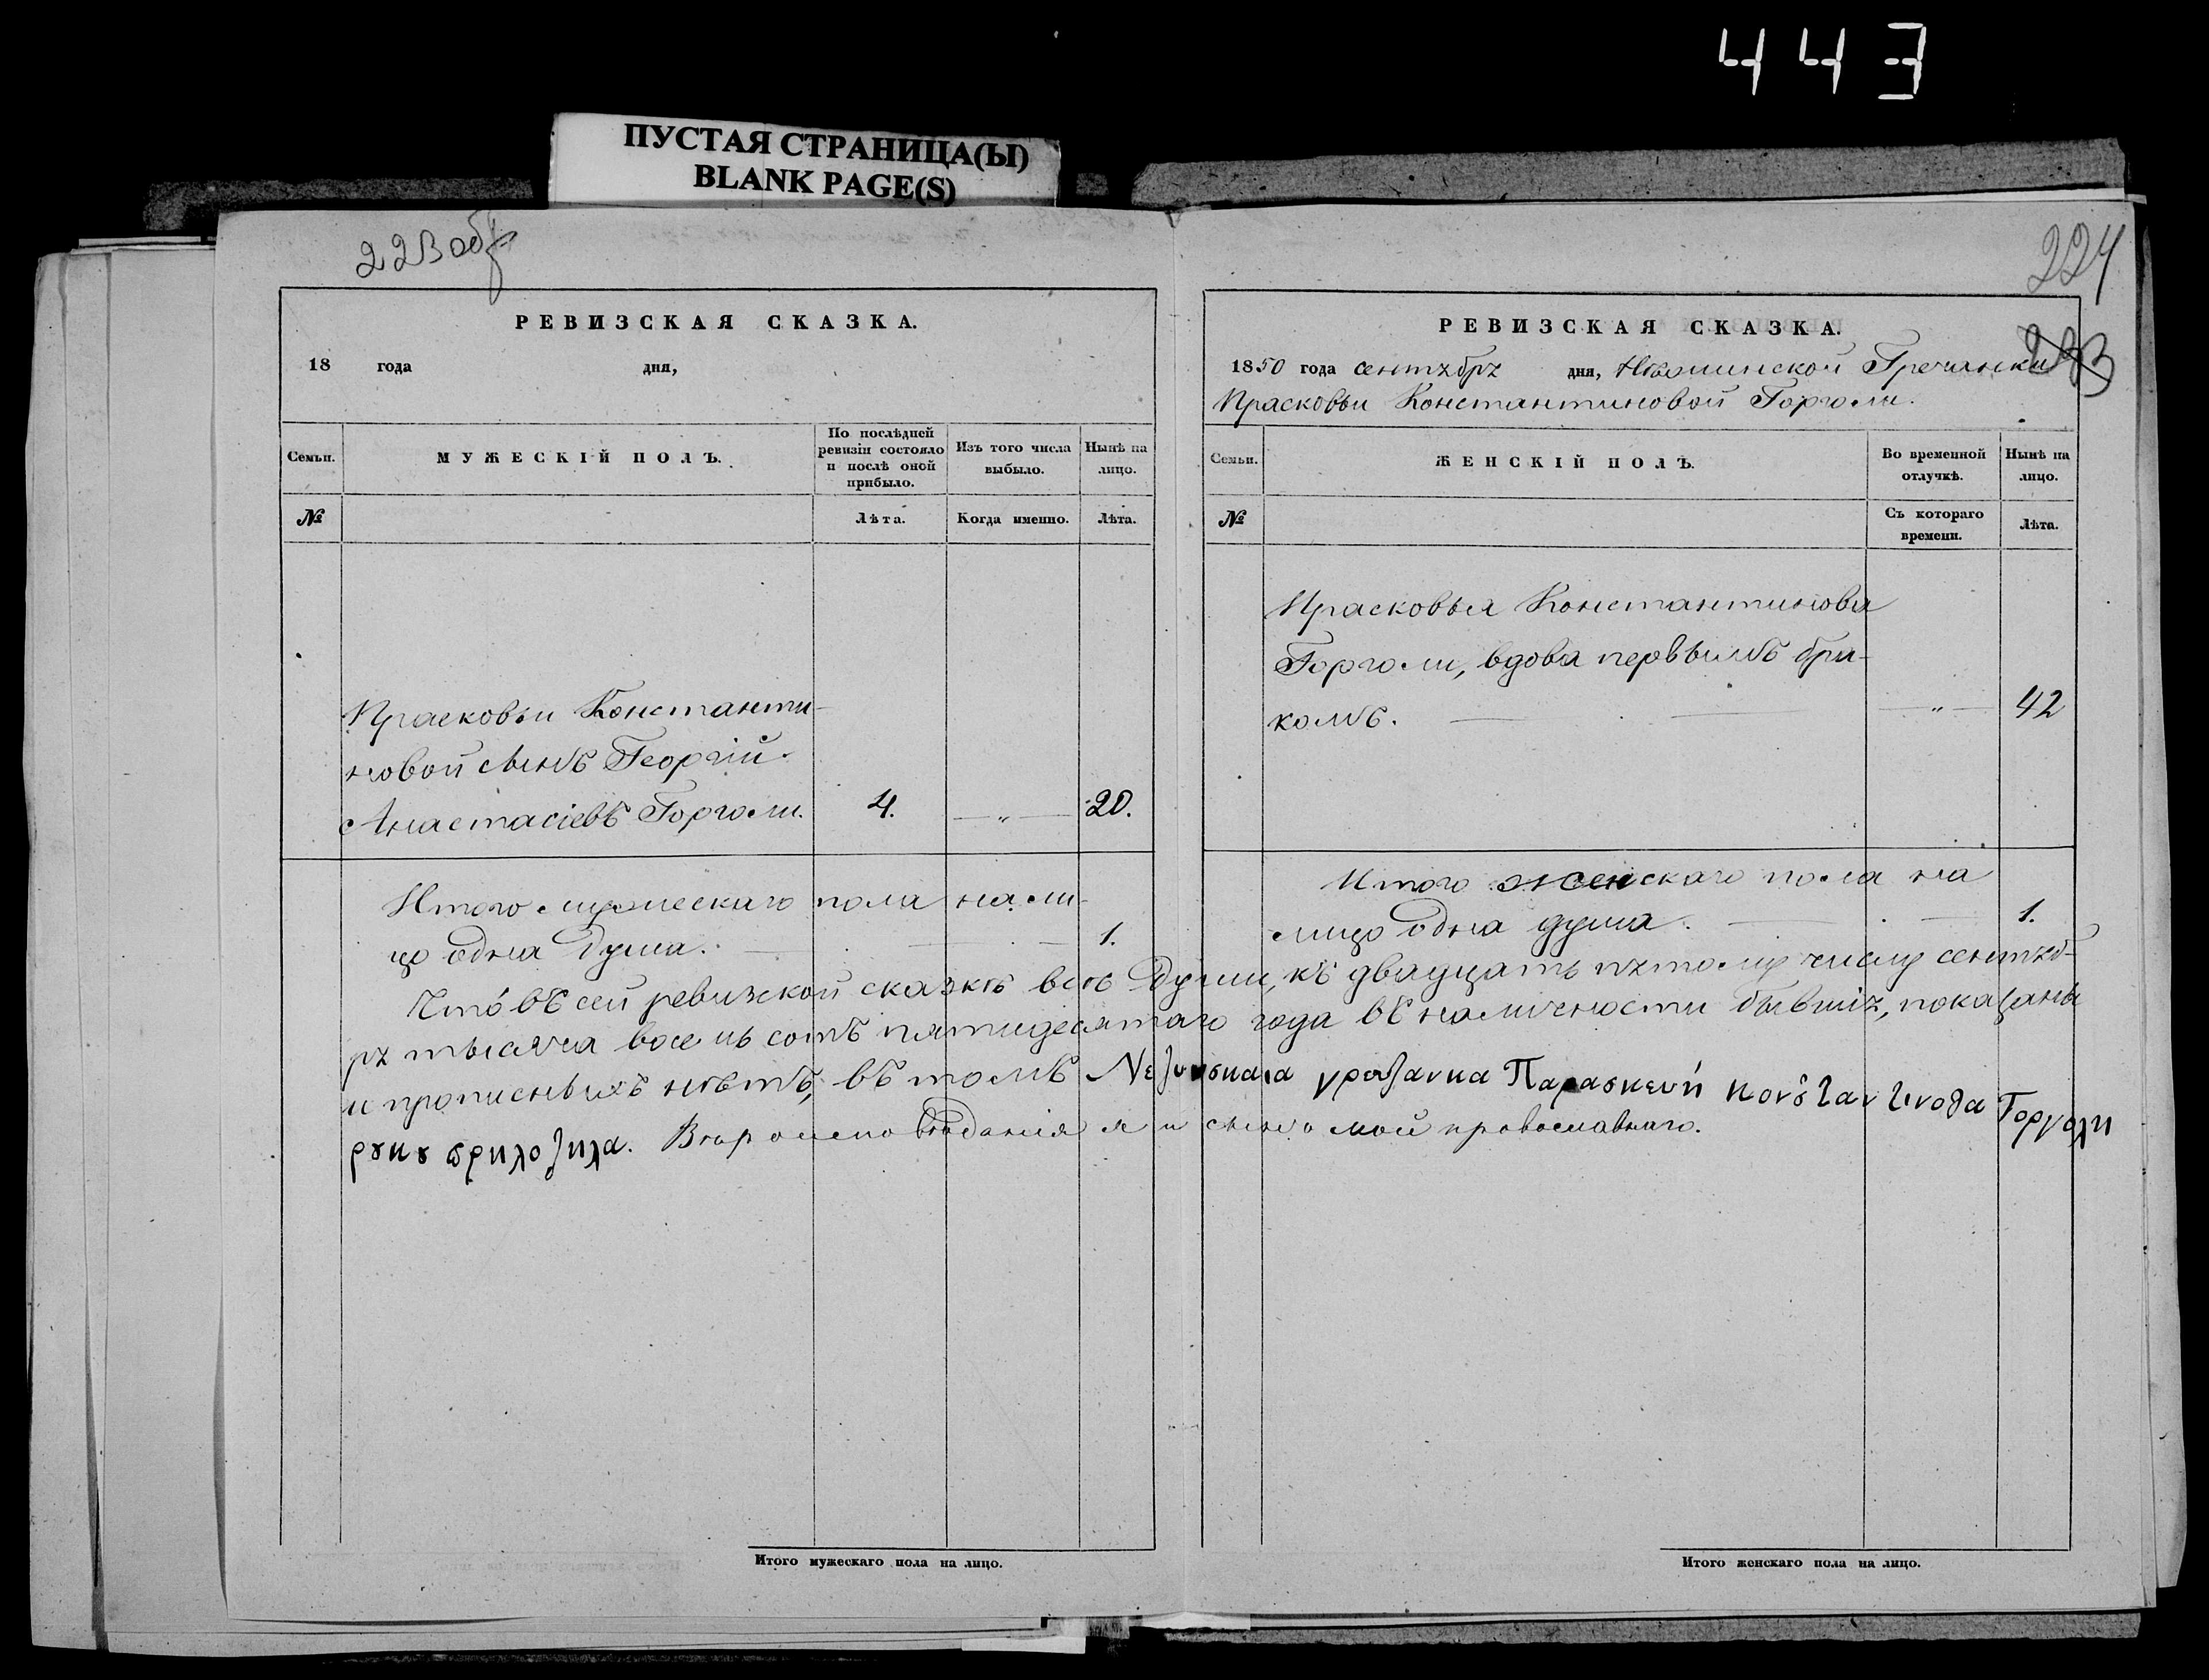 443
ПУСТАЯ СТРАНИЦА(Ы)
BLANK PAGE(S)
223 об
РЕВИЗСКАЯ СКАЗКА.
18 года дня,
Семьи.
МУЖЕСКІЙ ПОЛЪ.
По послѣдней ревизіи состояло и послѣ оной прибыло.
Изъ того числа выбыло.
Нынѣ на лицо.
№
Лѣта.
Когда именно.
Лѣта.
Прасковьи Константи-
новой сынъ Георгій
Анастасіевъ Горголи. 4. — „ — 20.
Итого мужескаго пола на ли-
цо одна душа. 1.
224
РЕВИЗСКАЯ СКАЗКА.
1850 года сентября дня, Нѣжинской Гречанки
Прасковьи Константиновой Горголи.
Семьи.
ЖЕНСКІЙ ПОЛЪ.
Во временной отлучкѣ.
Нынѣ на лицо.
№
Съ котораго времени.
Лѣта.
Прасковья Константинова
Горголи, вдова первымъ бра-
комъ. — „ — 42
Итого женскаго пола на
лицо одна душа. 1.
Что въ сей ревизской сказкѣ всѣ души, къ двадцать пятому числу сентяб-
ря тысяча восемь сотъ пятидесятаго года въ наличности бывшія, показаны
и прописныхъ нѣтъ, въ томъ Νεζυνσκαια γρεζανκα Παρασκευή κονσταντινοβα Γοργολη
ρȣκȣ πρηλοζηλα. Вѣроисповѣданія я и сынъ мой православнаго.
Итого мужескаго пола на лицо.
Итого женскаго пола на лицо.